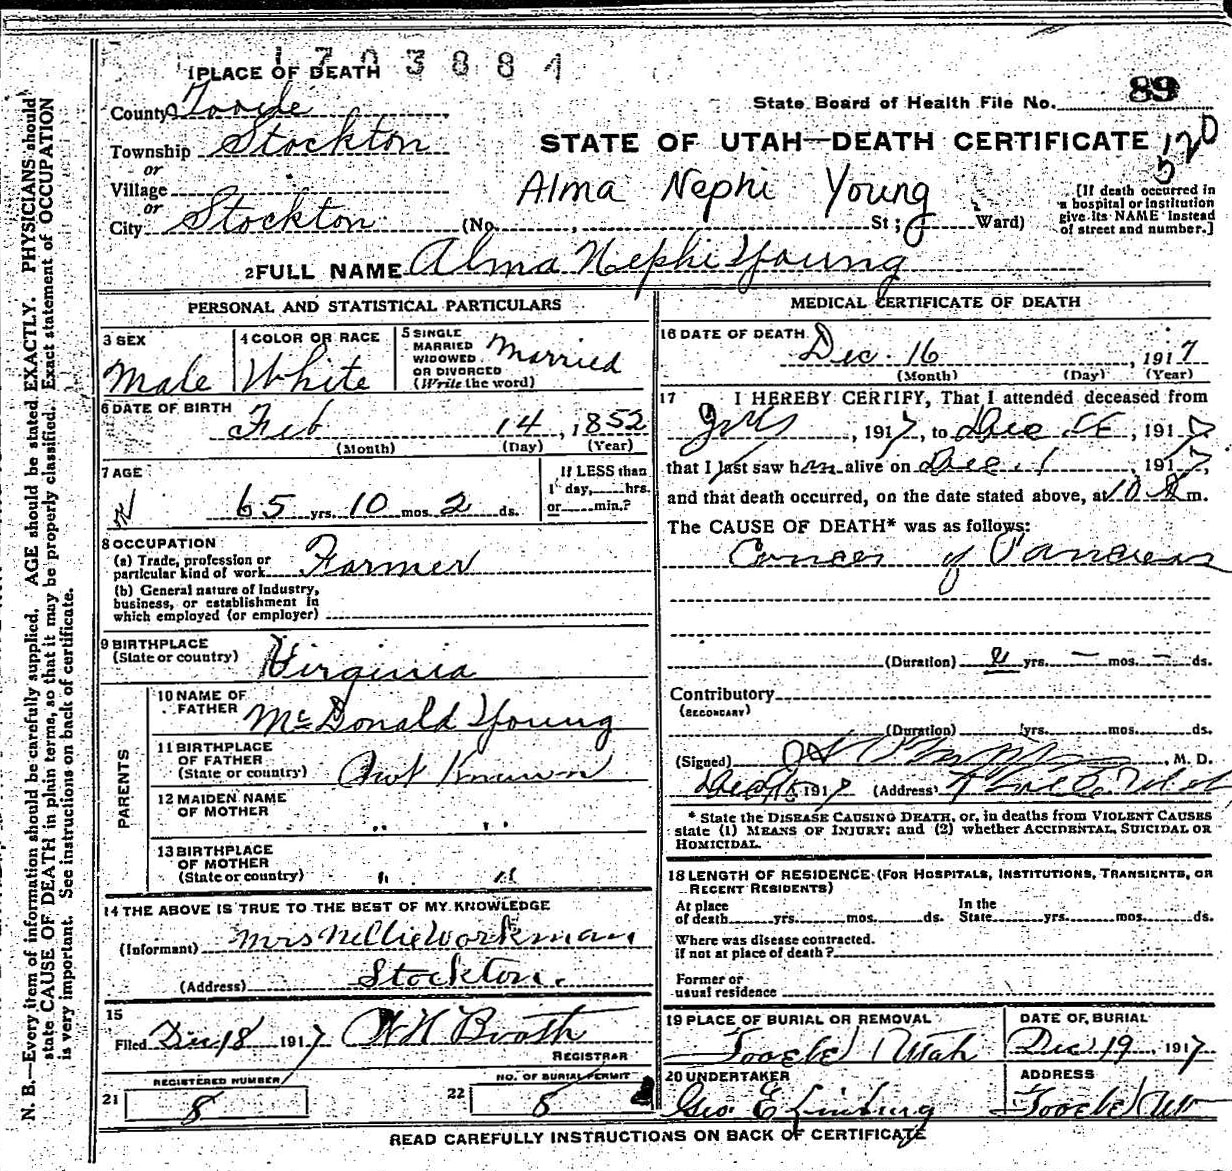 1703881
1 PLACE OF DEATH
County Tooele
State Board of Health File No. 89
Township Stockton
STATE OF UTAH—DEATH CERTIFICATE
120
or
Village
Alma Nephi Young
or
City Stockton (No. , St; Ward)
[If death occurred in
a hospital or institution
give its NAME instead
of street and number.]
2 FULL NAME Alma Nephi Young
PERSONAL AND STATISTICAL PARTICULARS
3 SEX
Male
4 COLOR OR RACE
White
5 SINGLE
MARRIED
WIDOWED
OR DIVORCED
(Write the word)
Married
6 DATE OF BIRTH
Feb 14, 1852
(Month) (Day) (Year)
7 AGE
65 yrs. 10 mos. 2 ds.
If LESS than
1 day, hrs.
or min.?
8 OCCUPATION
(a) Trade, profession or
particular kind of work Farmer
(b) General nature of Industry,
business, or establishment in
which employed (or employer)
9 BIRTHPLACE
(State or country) Virginia
PARENTS
10 NAME OF
FATHER McDonald Young
11 BIRTHPLACE
OF FATHER
(State or country) Not Known
12 MAIDEN NAME
OF MOTHER " "
13 BIRTHPLACE
OF MOTHER
(State or country) " "
14 THE ABOVE IS TRUE TO THE BEST OF MY KNOWLEDGE
(Informant) Mrs Nellie Workman
(Address) Stockton.
15
Filed Dec 18 1917 Booth
REGISTRAR
REGISTERED NUMBER
21 8
NO. OF BURIAL PERMIT
22 8
MEDICAL CERTIFICATE OF DEATH
16 DATE OF DEATH
Dec. 16, 1917
(Month) (Day) (Year)
17 I HEREBY CERTIFY, That I attended deceased from
, 1917, to Dec , 1917,
that I last saw him alive on Dec 1, 1917,
and that death occurred, on the date stated above, at 10 m.
The CAUSE OF DEATH* was as follows:
Cancer of Pancreas
(Duration) yrs. — mos. — ds.
Contributory
(SECONDARY)
(Duration) yrs. mos. ds.
(Signed) , M. D.
Dec 1917 (Address)
* State the DISEASE CAUSING DEATH, or, in deaths from VIOLENT CAUSES
state (1) MEANS OF INJURY; and (2) whether ACCIDENTAL, SUICIDAL OR
HOMICIDAL.
18 LENGTH OF RESIDENCE (FOR HOSPITALS, INSTITUTIONS, TRANSIENTS, OR
RECENT RESIDENTS)
At place
of death yrs. mos. ds.
In the
State yrs. mos. ds.
Where was disease contracted.
if not at place of death?
Former or
usual residence
19 PLACE OF BURIAL OR REMOVAL
Tooele Utah
DATE OF BURIAL
Dec 19, 1917
20 UNDERTAKER
Geo E
ADDRESS
Tooele Ut
READ CAREFULLY INSTRUCTIONS ON BACK OF CERTIFICATE
N. B.—Every item of information should be carefully supplied. AGE should be stated EXACTLY. PHYSICIANS should
state CAUSE OF DEATH in plain terms, so that it may be properly classified. Exact statement of OCCUPATION
is very important. See instructions on back of certificate.